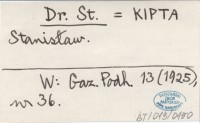 Dr. St. = KIPTA
Stanisław.
W: Gaz. Podh. 13 (1925),
nr 36.